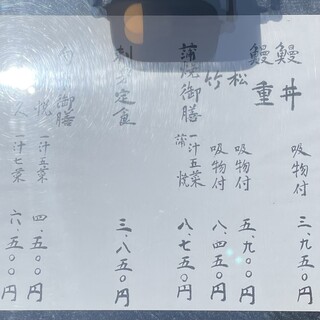 鰻丼 吸物付 三、九五〇円
鰻重
松 吸物付 五、九〇〇円
竹 吸物付 八、四五〇円
蒲焼御膳 一汁五菜 蒲焼 八、七五〇円
刺身定食 三、八五〇円
御膳
一汁五菜 四、五〇〇円
一汁七菜 六、五〇〇円